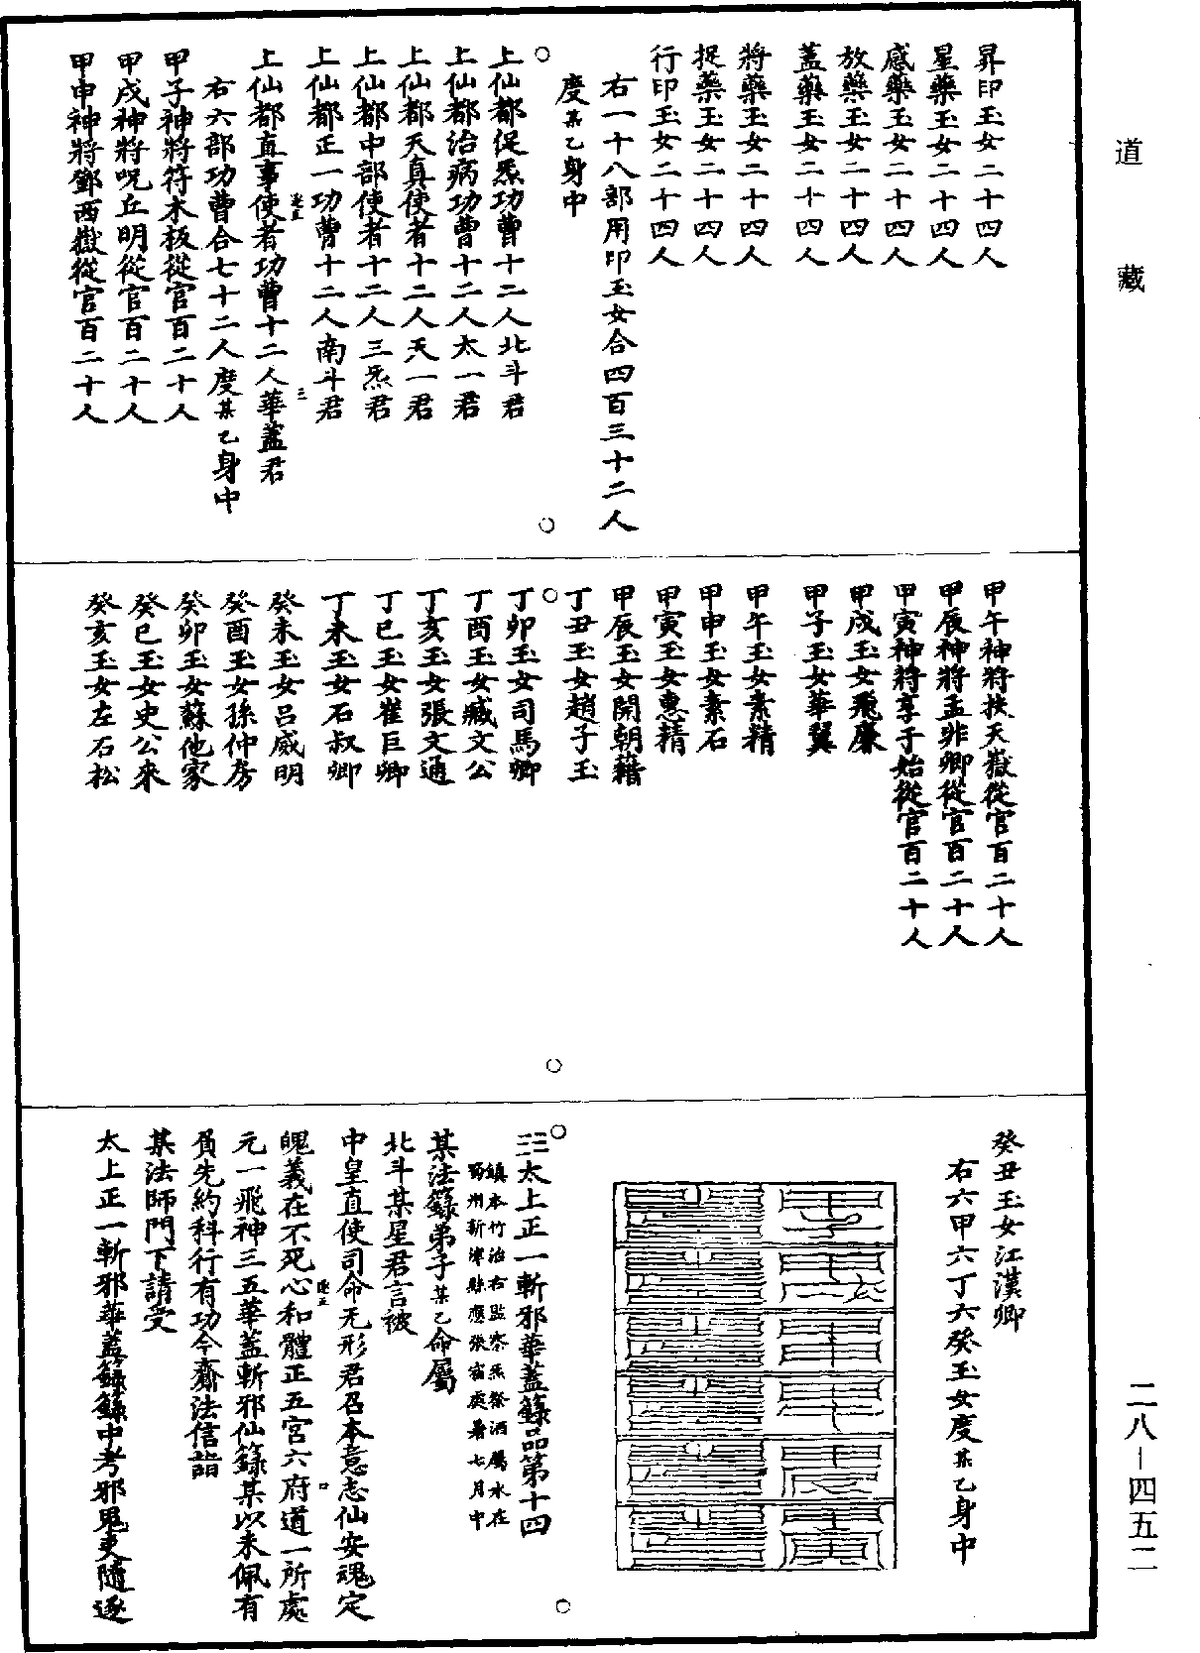 道藏
昇印玉女二十四人
星藥玉女二十四人
感藥玉女二十四人
放藥玉女二十四人
蓋藥玉女二十四人
將藥玉女二十四人
捉藥玉女二十四人
行印玉女二十四人
右一十八部用印玉女合四百三十二人
度某乙身中
上仙都促炁功曹十二人北斗君
上仙都治病功曹十二人太一君
上仙都天真使者十二人天一君
上仙都中部使者十二人三炁君
上仙都正一功曹十二人南斗君
上仙都直事使者功曹十二人華蓋君
右六部功曹合七十二人度某乙身中
甲子神將符木板從官百二十人
甲戌神將呪丘明從官百二十人
甲申神將鄧西嶽從官百二十人
甲午神將扶天嶽從官百二十人
甲辰神將孟非卿從官百二十人
甲寅神將享子始從官百二十人
甲戌玉女飛廉
甲子玉女華翼
甲午玉女素精
甲申玉女素石
甲寅玉女惠精
甲辰玉女開朝藉
丁丑玉女趙子玉
丁卯玉女司馬卿
丁酉玉女臧文公
丁亥玉女張文通
丁巳玉女崔巨卿
丁未玉女石叔卿
癸未玉女呂威明
癸酉玉女孫仲房
癸卯玉女蘇他家
癸巳玉女史公來
癸亥玉女左石松
癸丑玉女江漢卿
右六甲六丁六癸玉女度某乙身中
太上正一斬邪華蓋籙品第十四
鎮本竹治右監察炁祭酒屬水在
蜀州新津縣應張宿處暑七月中
某法籙弟子某乙命屬
北斗某星君言被
中皇直使司命无形君召本意志仙安魂定
魄義在不死心和體正五宮六府道一所處
元一飛神三五華蓋斬邪仙籙某以未佩有
負先約科行有功今齎法信詣
某法師門下請受
太上正一斬邪華蓋籙籙中考邪鬼吏隨逐
二八—四五二